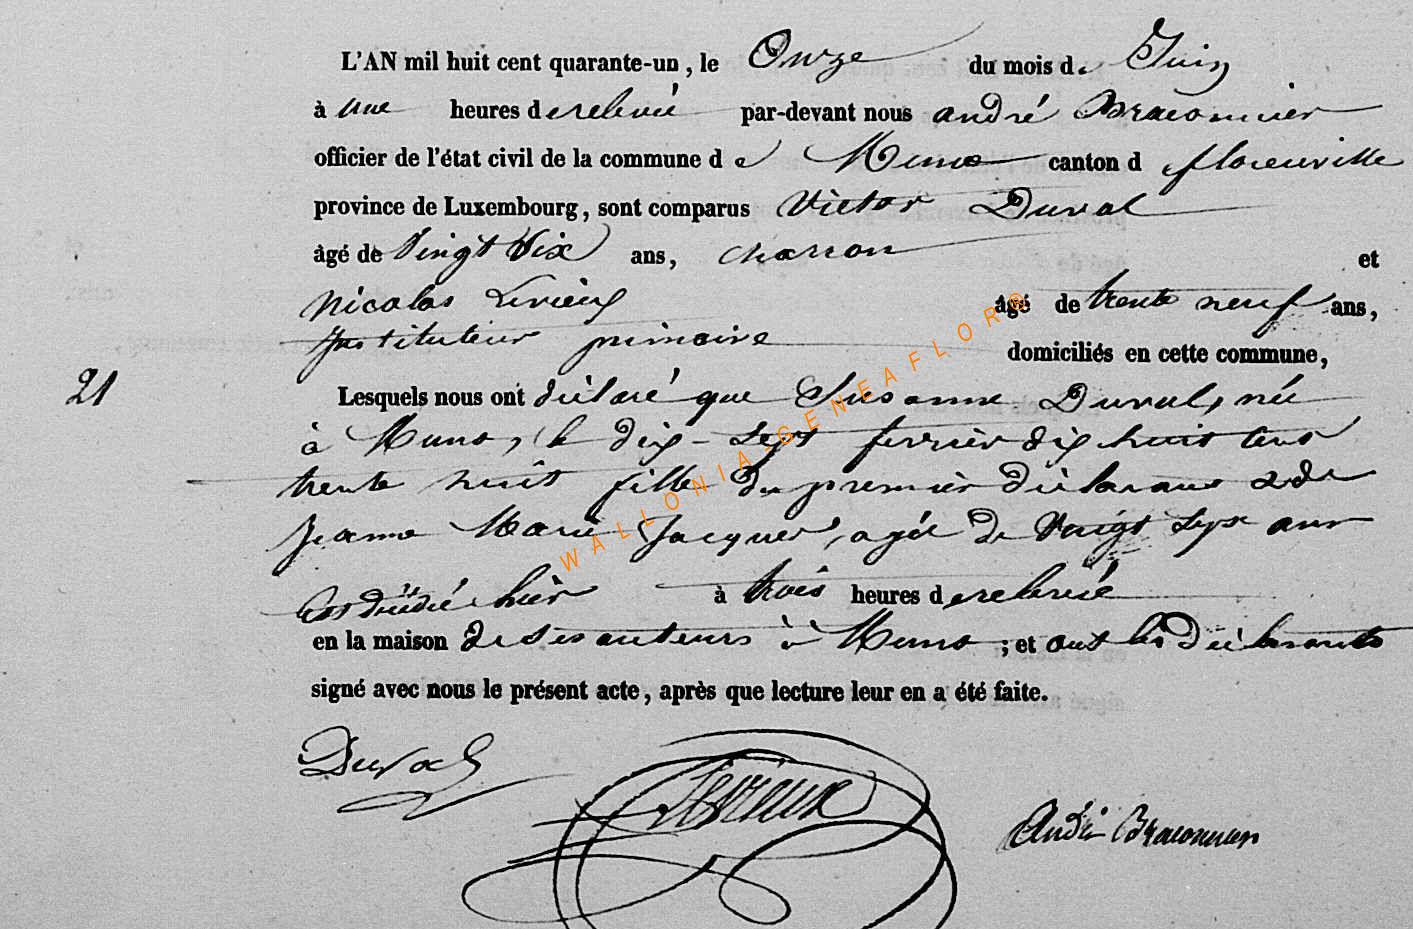 L'AN mil huit cent quarante-un, le Onze du mois de Juin
à une heures de relevée par-devant nous andré Braconnier
officier de l'état civil de la commune de Muno canton d florenville
province de Luxembourg, sont comparus Victor Duval
âgé de Vingt Six ans, charron et
Nicolas Levieux âgé de trente neuf ans,
Instituteur primaire domiciliés en cette commune,
21 Lesquels nous ont déclaré que Susanne Duval, née
à Muno, le dix-sept fevrier dix huit cens
trente huit fille du premier déclarant & de
Jeanne Marie Jacques, agée de Vingt Sept ans
Est décédée hier à trois heures de relevée
en la maison de ses auteurs à Muno ; et ont les déclarants
signé avec nous le présent acte, après que lecture leur en a été faite.
Duval Levieux André Braconnier
WALLONIA-GENEAFLOR®